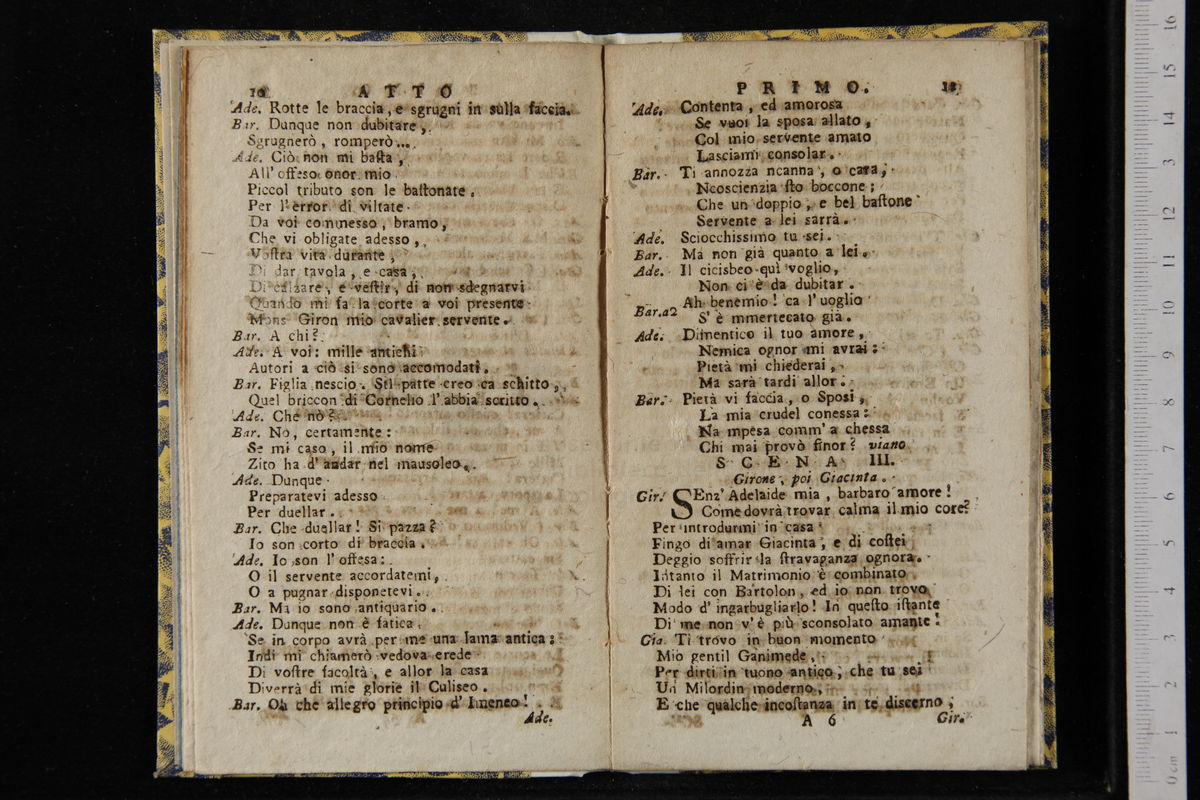 10 ATTO
Ade. Rotte le braccia, e sgrugni in sulla faccia.
Bar. Dunque non dubitare,
Sgrugnerò, romperò...
Ade. Ciò non mi baſta,
All' offeso onor mio
Piccol tributo son le baſtonate.
Per l'error di viltate
Da voi commesso, bramo,
Che vi obligate adesso,
Voſtra vita durante,
Di dar tavola, e casa,
Di calzare, e veſtir, di non sdegnarvi
Quando mi fa la corte a voi presente
Mons Giron mio cavalier servente.
Bar. A chi?
Ade. A voi: mille antichi
Autori a ciò si sono accomodati.
Bar. Figlia nescio. Sti patte creo ca schitto,
Quel briccon di Cornelio l'abbia scritto.
Ade. Che nò?
Bar. No, certamente:
Se mi caso, il mio nome
Zito ha d'andar nel mausoleo.
Ade. Dunque
Preparatevi adesso
Per duellar.
Bar. Che duellar! Si pazza?
Io son corto di braccia.
Ade. Io son l'offesa:
O il servente accordatemi,
O a pugnar disponetevi.
Bar. Ma io sono antiquario.
Ade. Dunque non è fatica.
Se in corpo avrà per me una lama antica:
Indi mi chiamerò vedova erede
Di voſtre facoltà, e allor la casa
Diverrà di mie glorie il Culiseo.
Bar. Oh che allegro principio d'Imeneo!
Ade.
PRIMO. 11
Ade. Contenta, ed amorosa
Se vuoi la sposa allato,
Col mio servente amato
Lasciami consolar.
Bar. Ti annozza ncanna, o cara,
Ncoscienzia ſto boccone;
Che un doppio, e bel baſtone
Servente a lei sarrà.
Ade. Sciocchissimo tu sei.
Bar. Ma non già quanto a lei.
Ade. Il cicisbeo quì voglio,
Non ci è da dubitar.
Bar. a2 Ah benemio! ca l'uoglio
S'è mmertecato già.
Ade. Dimentico il tuo amore,
Nemica ognor mi avrai:
Pietà mi chiederai,
Ma sarà tardi allor.
Bar. Pietà vi faccia, o Sposi,
La mia crudel conessa:
Na mpesa comm' a chessa
Chi mai provò finor? viano
SCENA III.
Girone, poi Giacinta.
Gir. SEnz' Adelaide mia, barbaro amore!
Come dovrà trovar calma il mio core?
Per introdurmi in casa
Fingo di amar Giacinta, e di coſtei
Deggio soffrir la ſtravaganza ognora.
Intanto il Matrimonio è combinato
Di lei con Bartolon, ed io non trovo
Modo d'ingarbugliarlo! In queſto iſtante
Di me non v'è più sconsolato amante!
Gia. Ti trovo in buon momento
Mio gentil Ganimede,
Per dirti in tuono antico, che tu sei
Un Milordin moderno,
E che qualche incoſtanza in te discerno;
A 6 Gir.
0 cm 1 2 3 4 5 6 7 8 9 10 11 12 13 14 15 16